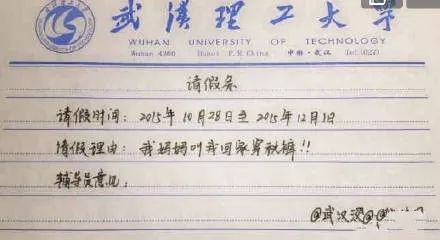 武汉理工大学
WUHAN UNIVERSITY OF TECHNOLOGY
Wuhan Hubei P.R.China 中国·武汉 Tel:(027)
请假条
请假时间：2015年10月28日至2015年12月1日
请假理由：我妈妈叫我回家穿秋裤!!
辅导员意见：
@武汉